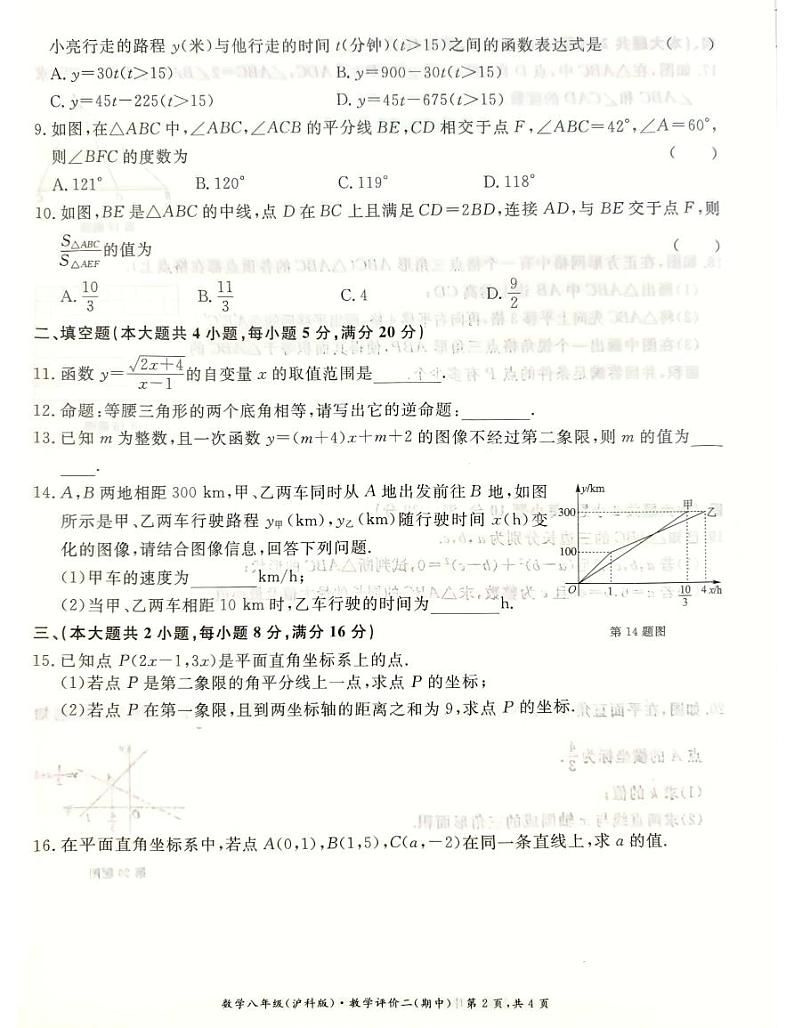 小亮行走的路程 y(米)与他行走的时间 t(分钟)(t>15)之间的函数表达式是 ( )
A. y=30t(t>15) B. y=900-30t(t>15)
C. y=45t-225(t>15) D. y=45t-675(t>15)
9. 如图,在△ABC 中,∠ABC,∠ACB 的平分线 BE,CD 相交于点 F,∠ABC=42°,∠A=60°,
则∠BFC 的度数为 ( )
A. 121° B. 120° C. 119° D. 118°
10. 如图,BE 是△ABC 的中线,点 D 在 BC 上且满足 CD=2BD,连接 AD,与 BE 交于点 F,则
S△ABC/S△AEF 的值为 ( )
A. 10/3 B. 11/3 C. 4 D. 9/2
二、填空题(本大题共 4 小题,每小题 5 分,满分 20 分)
11. 函数 y=√(2x+4)/(x-1) 的自变量 x 的取值范围是______.
12. 命题:等腰三角形的两个底角相等,请写出它的逆命题:______.
13. 已知 m 为整数,且一次函数 y=(m+4)x+m+2 的图像不经过第二象限,则 m 的值为___
___.
14. A,B 两地相距 300 km,甲、乙两车同时从 A 地出发前往 B 地,如图
所示是甲、乙两车行驶路程 y甲(km),y乙(km)随行驶时间 x(h)变
化的图像,请结合图像信息,回答下列问题.
(1)甲车的速度为______km/h;
(2)当甲、乙两车相距 10 km 时,乙车行驶的时间为______h.
y/km
甲
300
乙
100
O 1 10/3 4 x/h
第 14 题图
三、(本大题共 2 小题,每小题 8 分,满分 16 分)
15. 已知点 P(2x-1,3x)是平面直角坐标系上的点.
(1)若点 P 是第二象限的角平分线上一点,求点 P 的坐标;
(2)若点 P 在第一象限,且到两坐标轴的距离之和为 9,求点 P 的坐标.
16. 在平面直角坐标系中,若点 A(0,1),B(1,5),C(a,-2)在同一条直线上,求 a 的值.
数学八年级(沪科版)·教学评价二(期中) 第 2 页,共 4 页